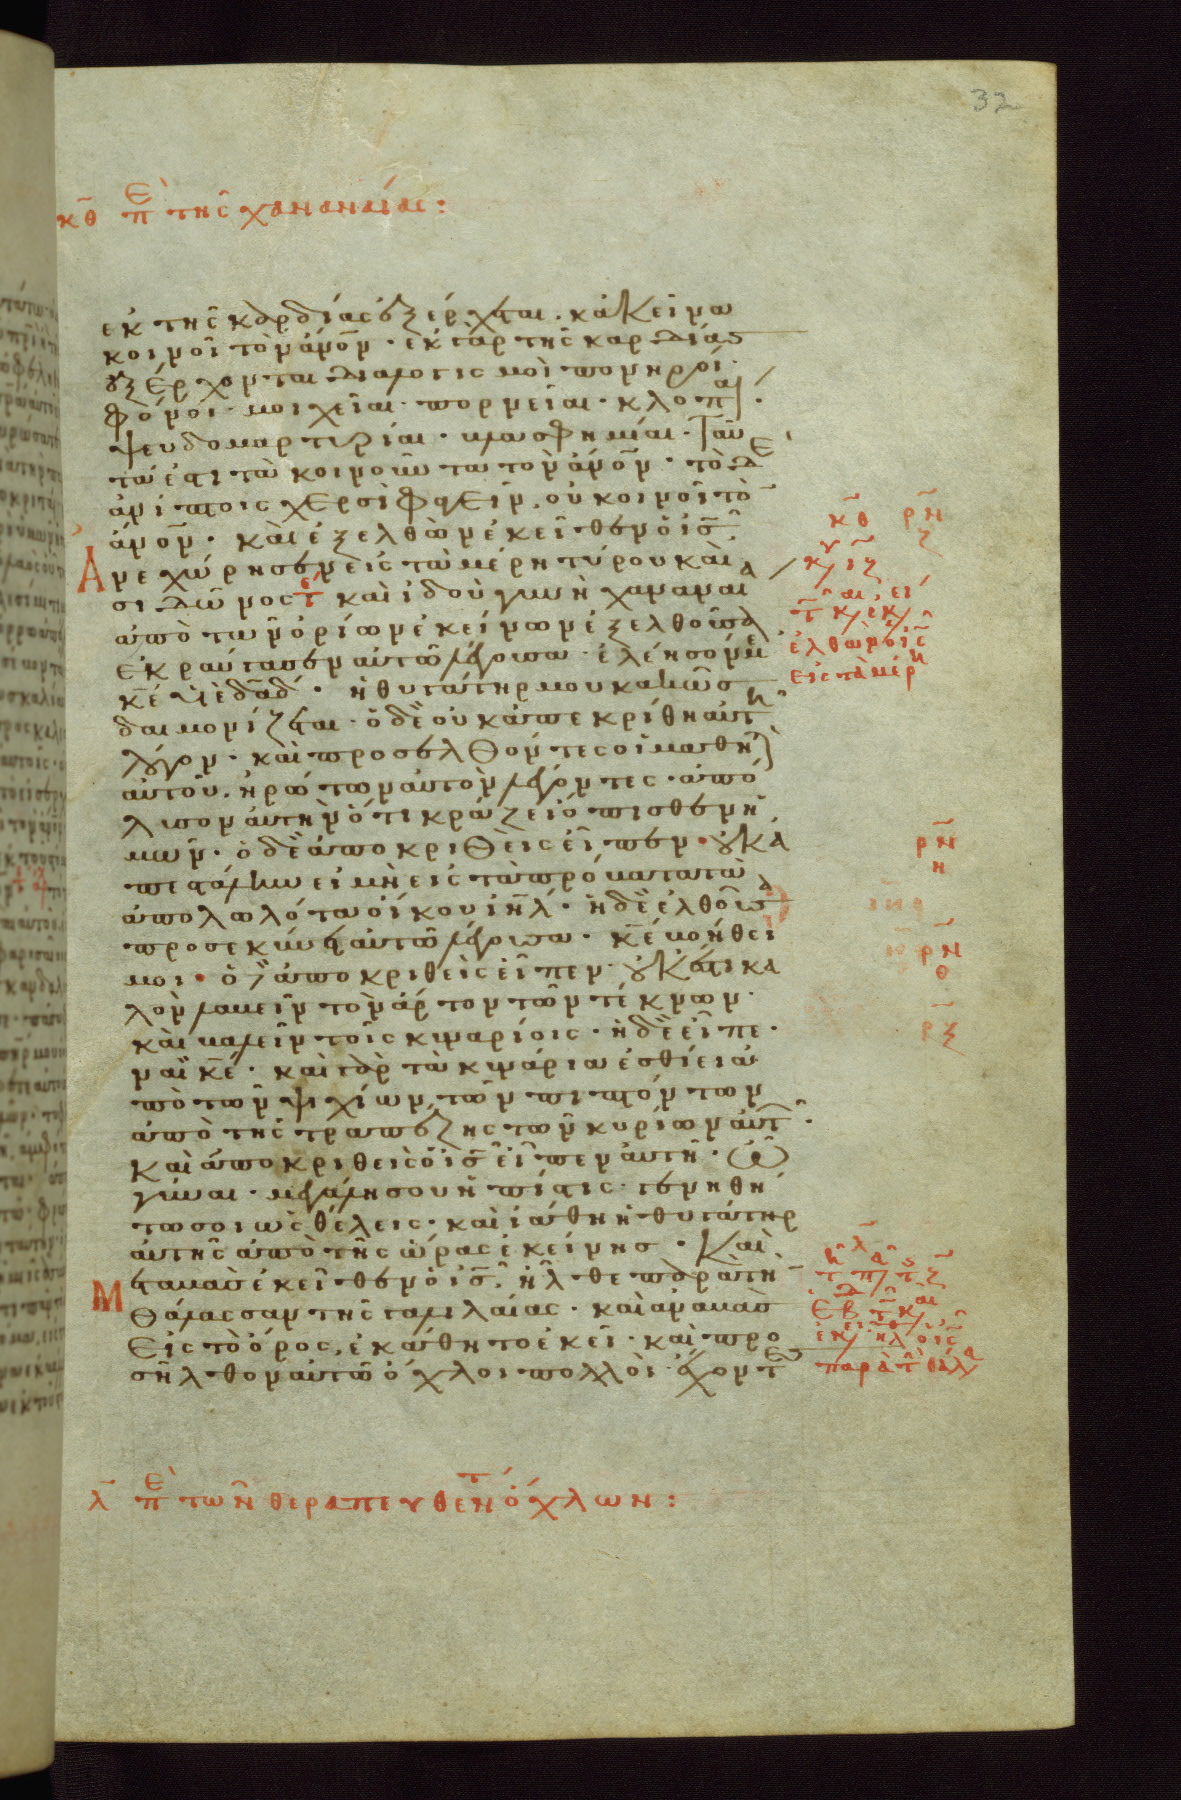 32
κ̅θ̅ πὲ τῆς χαναναίας:
ἐκ τῆς καρδίας ἐξέρχεται. κἀκεῖνα
κοινοῖ τὸν ἄν̅ο̅ν̅. ἐκ γὰρ τῆς καρδίας
ἐξέρχονται διαλογισμοὶ πονηροί.
φόνοι. μοιχεῖαι. πορνεῖαι. κλοπαί.
ψευδομαρτυρίαι. βλασφημίαι. ταῦ
τά ἐστι τὰ κοινοῦντα τὸν ἄν̅ο̅ν̅. τὸ δὲ
ἀνίπτοις χερσὶ φαγεῖν, οὐ κοινοῖ τὸν
ἄν̅ο̅ν̅. καὶ ἐξελθὼν ἐκεῖθεν ὁ ι̅ς̅
ἀνεχώρησεν εἰς τὰ μέρη τύρου καὶ
σιδῶνος τε καὶ ἰδοὺ γυνὴ χαναναία
ἀπὸ τῶν ὁρίων ἐκείνων ἐξελθοῦσα
ἐκραύγασεν αὐτῶ λέγουσα. ἐλέησόν με
κ̅ε̅ υἱὲ δ̅α̅δ̅. ἡ θυγάτηρ μου κακῶς
δαιμονίζεται. ὁ δὲ οὐκ ἀπεκρίθη αὐτῆ
λόγον. καὶ προσελθόντες οἱ μαθηταὶ
αὐτοῦ, ἠρώτων αὐτὸν λέγοντες. ἀπό
λυσον αὐτὴν ὅτι κράζει ὄπισθεν ἡ
μῶν. ὁ δὲ ἀποκριθεὶς εἶπεν. οὐκ ἀ
πεστάλην εἰ μὴ εἰς τὰ πρόβατα τὰ
ἀπολωλότα οἴκου ι̅η̅λ̅. ἡ δὲ ἐλθοῦσα
προσεκύνει αὐτῶ λέγουσα. κ̅ε̅ βοήθει
μοι. ὁ δὲ ἀποκριθεὶς εἶπεν. οὐκ ἔστι κα
λὸν λαβεῖν τὸν ἄρτον τῶν τέκνων.
καὶ βαλεῖν τοῖς κυναρίοις. ἡ δὲ εἶπε.
ναὶ κ̅ε̅. καὶ γὰρ τὰ κυνάρια ἐσθίει ἀ
πὸ τῶν ψιχίων, τῶν πιπτόντων
ἀπὸ τῆς τραπέζης τῶν κυρίων αὐτῶν.
καὶ ἀποκριθεὶς ὁ ι̅ς̅ εἶπεν αὐτῆ. ὦ
γύναι. μεγάλη σου ἡ πίστις. γενηθή
τω σοι ὡς θέλεις. καὶ ἰάθη ἡ θυγάτηρ
αὐτῆς ἀπὸ τῆς ὥρας ἐκείνης. καὶ
Μεταβὰς ἐκεῖθεν ὁ ι̅ς̅, ἦλθε παρὰ τὴν
θάλασσαν τῆς γαλιλαίας. καὶ ἀναβὰς
εἰς τὸ ὄρος, ἐκάθητο ἐκεῖ. καὶ προ
σῆλθον αὐτῶ ὄχλοι πολλοὶ ἔχοντες
κ̅θ̅
ρ̅ν̅ζ
κυ ιζ
ἐλθὼν ὁ ι̅ς̅
εἰς τὰ μέρη
ρ̅ν̅η
ρ̅ν̅θ
ρ̅ξ̅
λ̅
παρὰ τ̀ θάλα
λ̅ πὲ τῶν θεραπευθέντ ὄχλων: